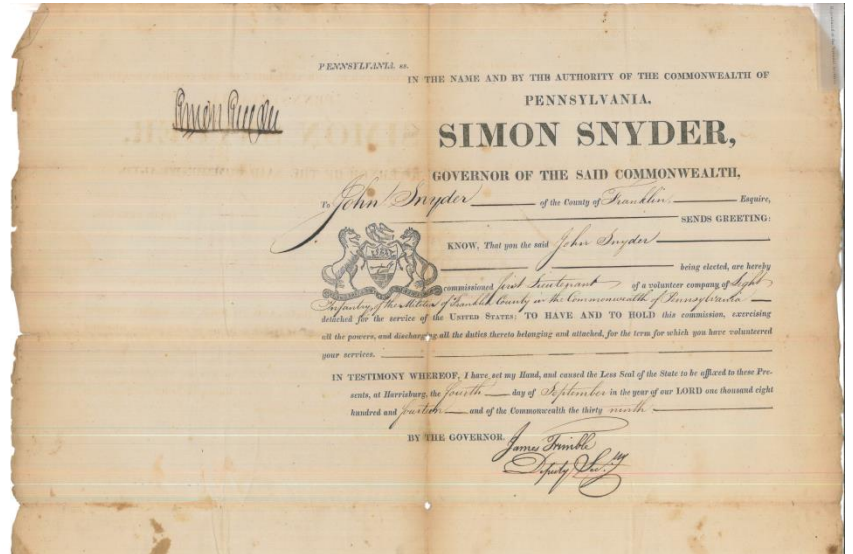 PENNSYLVANIA, ss.
IN THE NAME AND BY THE AUTHORITY OF THE COMMONWEALTH OF
PENNSYLVANIA,
Simon Snyder
SIMON SNYDER,
GOVERNOR OF THE SAID COMMONWEALTH,
To John Snyder of the County of Franklin Esquire,
SENDS GREETING:
KNOW, That you the said John Snyder
being elected, are hereby
commissioned first Lieutenant of a volunteer company of Light
Infantry, of the Militia of Franklin County in the Commonwealth of Pennsylvania
detached for the service of the UNITED STATES: TO HAVE AND TO HOLD this commission, exercising
all the powers, and discharging all the duties thereto belonging and attached, for the term for which you have volunteered
your services.
IN TESTIMONY WHEREOF, I have set my Hand, and caused the Less Seal of the State to be affixed to these Pre-
sents, at Harrisburg, the fourth day of September in the year of our LORD one thousand eight
hundred and fourteen and of the Commonwealth the thirty ninth
BY THE GOVERNOR.
James Trimble
Deputy Secy